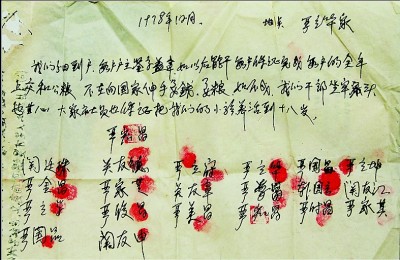 1978年12月. 地点 严立华家
我们分田到户,每户户主签字盖章,如以后能干每户保证完成每户的全年
上交和公粮,不在向国家伸手要钱要粮,如不成,我们干部作牢杀头
也干心,大家社员也保证把我们的小孩养活到十八岁。
严宏昌
关廷珠 关友德 严立富 严立华 严国昌 严立坤
严金昌 严家芝 关友章 严学昌 韩国云 关友江
严立学 严俊昌 严美昌 严宏昌 严付昌 严家其
严国品 关友申